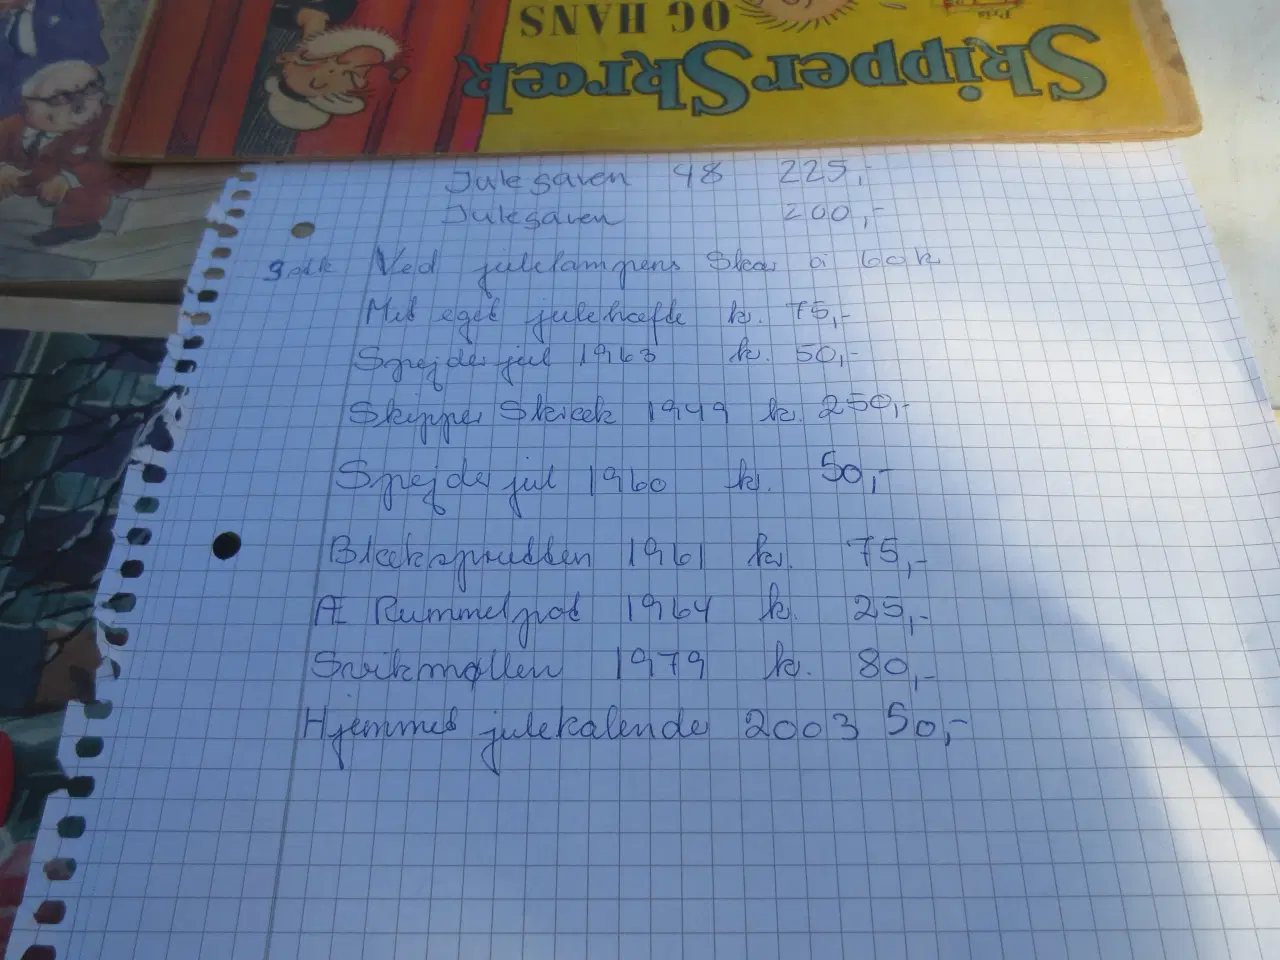 Skipper Skræk
OG HANS
Pris
Julegaven 48 225,-
Julegaven 200,-
9 stk Ved julelampens Skær á 60 k
Mit eget julehæfte kr. 75,-
Spejder jul 1963 kr. 50,-
Skipper Skræk 1949 kr. 250,-
Spejder jul 1960 kr. 50,-
Blæksprutten 1961 kr. 75,-
Æ Rummelpot 1964 kr. 25,-
Svikmøllen 1979 kr. 80,-
Hjemmet julekalender 2003 50,-